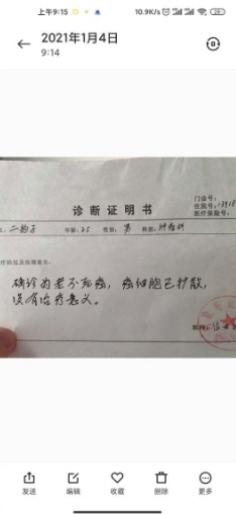 上午9:15
10.9K/s
28
2021年1月4日
9:14
门诊号:
住院号:
医疗保险号:
诊断证明书
二狗子 年龄:25 性别:男 科别:肿瘤科
确诊为老不死癌,癌细胞已扩散,
没有治疗意义。
发送 编辑 收藏 删除 更多